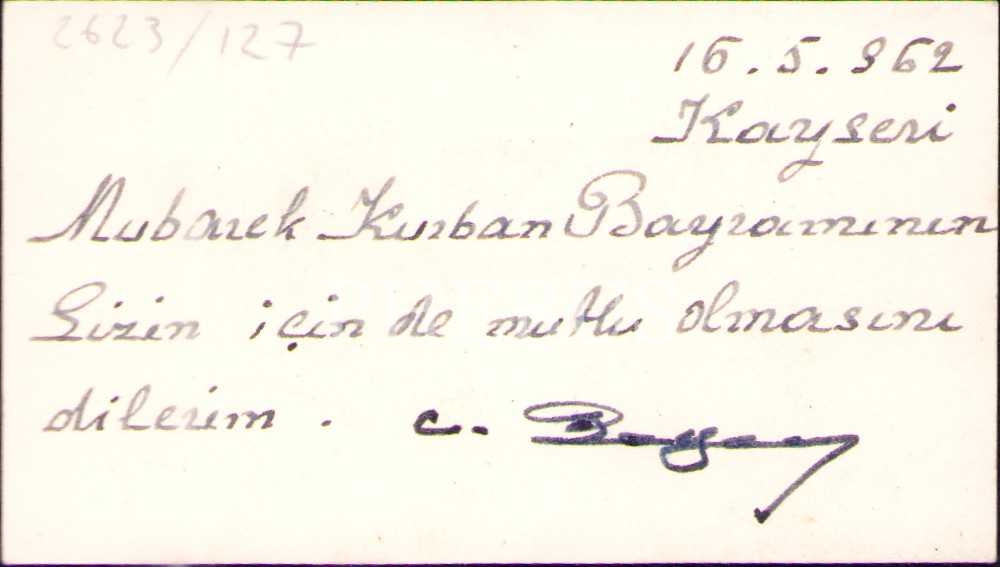 2623/127
16.5.962
Kayseri
Mubarek Kurban Bayramının
Sizin için de mutlu olmasını
dilerim. C.